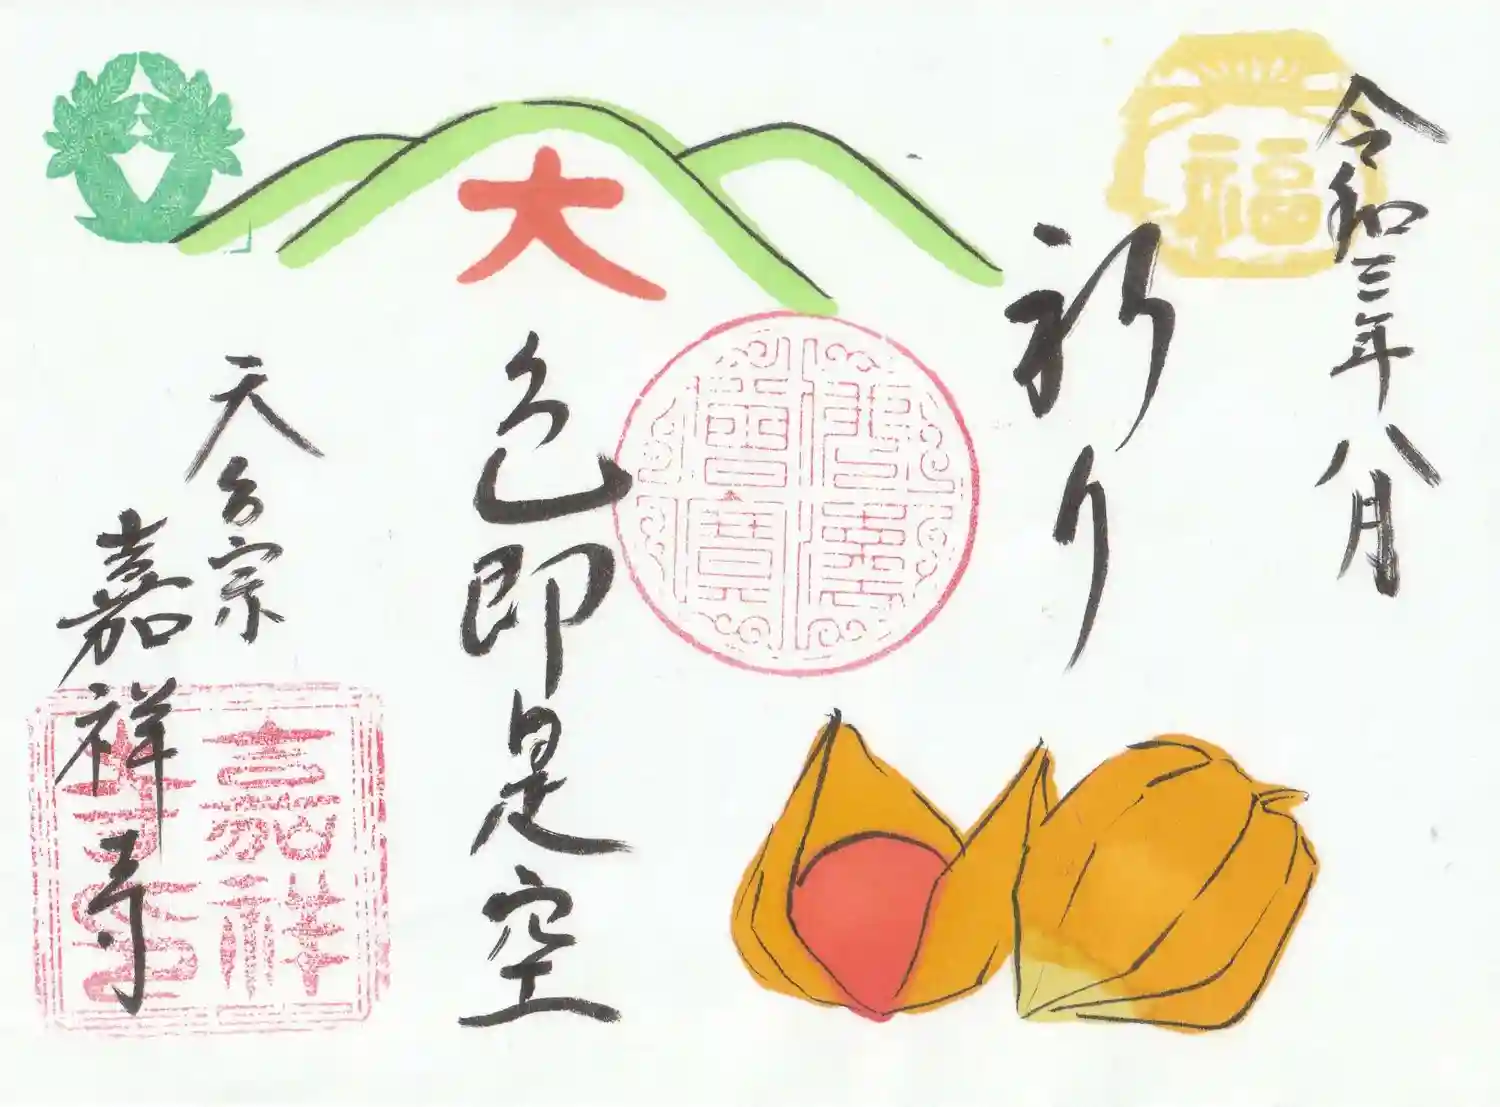 令和三年八月
福
祈り
大
色即是空
天台宗
嘉祥寺
嘉祥
寺